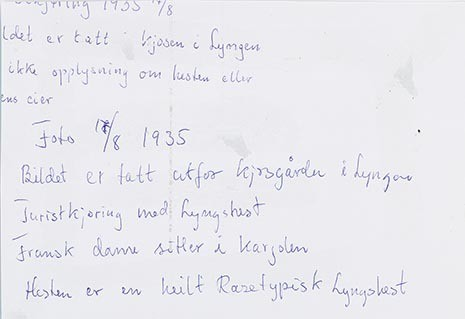 kjøring 1935 17/8
ldet er tatt i Kjosen i Lyngen
ikke opplysning om hesten eller
ens eier
Foto 17/8 1935
Bildet er tatt utfor Kjosgården i Lyngen
Turistkjøring med Lyngshest
Fransk dame sitter i Karjolen
Hesten er en heilt Rasetypisk Lyngshest